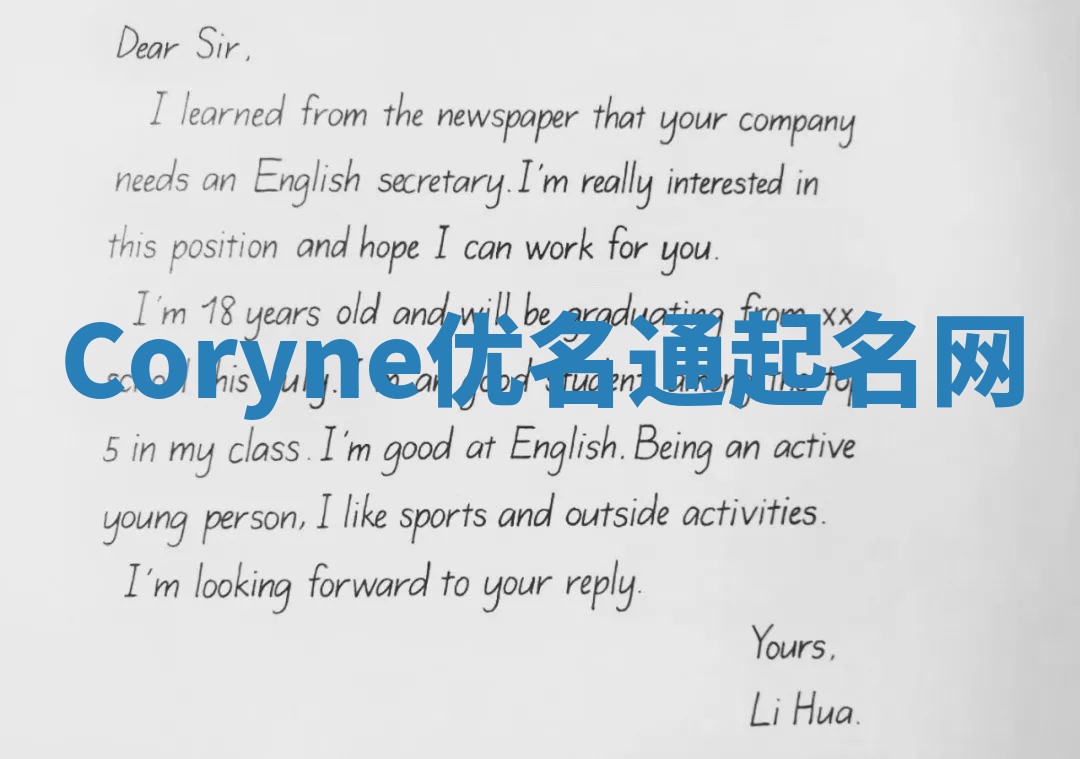 Dear Sir,
I learned from the newspaper that your company
needs an English secretary. I'm really interested in
this position and hope I can work for you.
I'm 18 years old and will be graduating from xx
Coryne优名通起名网
school this July. I'm a good student among the top
5 in my class. I'm good at English. Being an active
young person, I like sports and outside activities.
I'm looking forward to your reply.
Yours,
Li Hua.